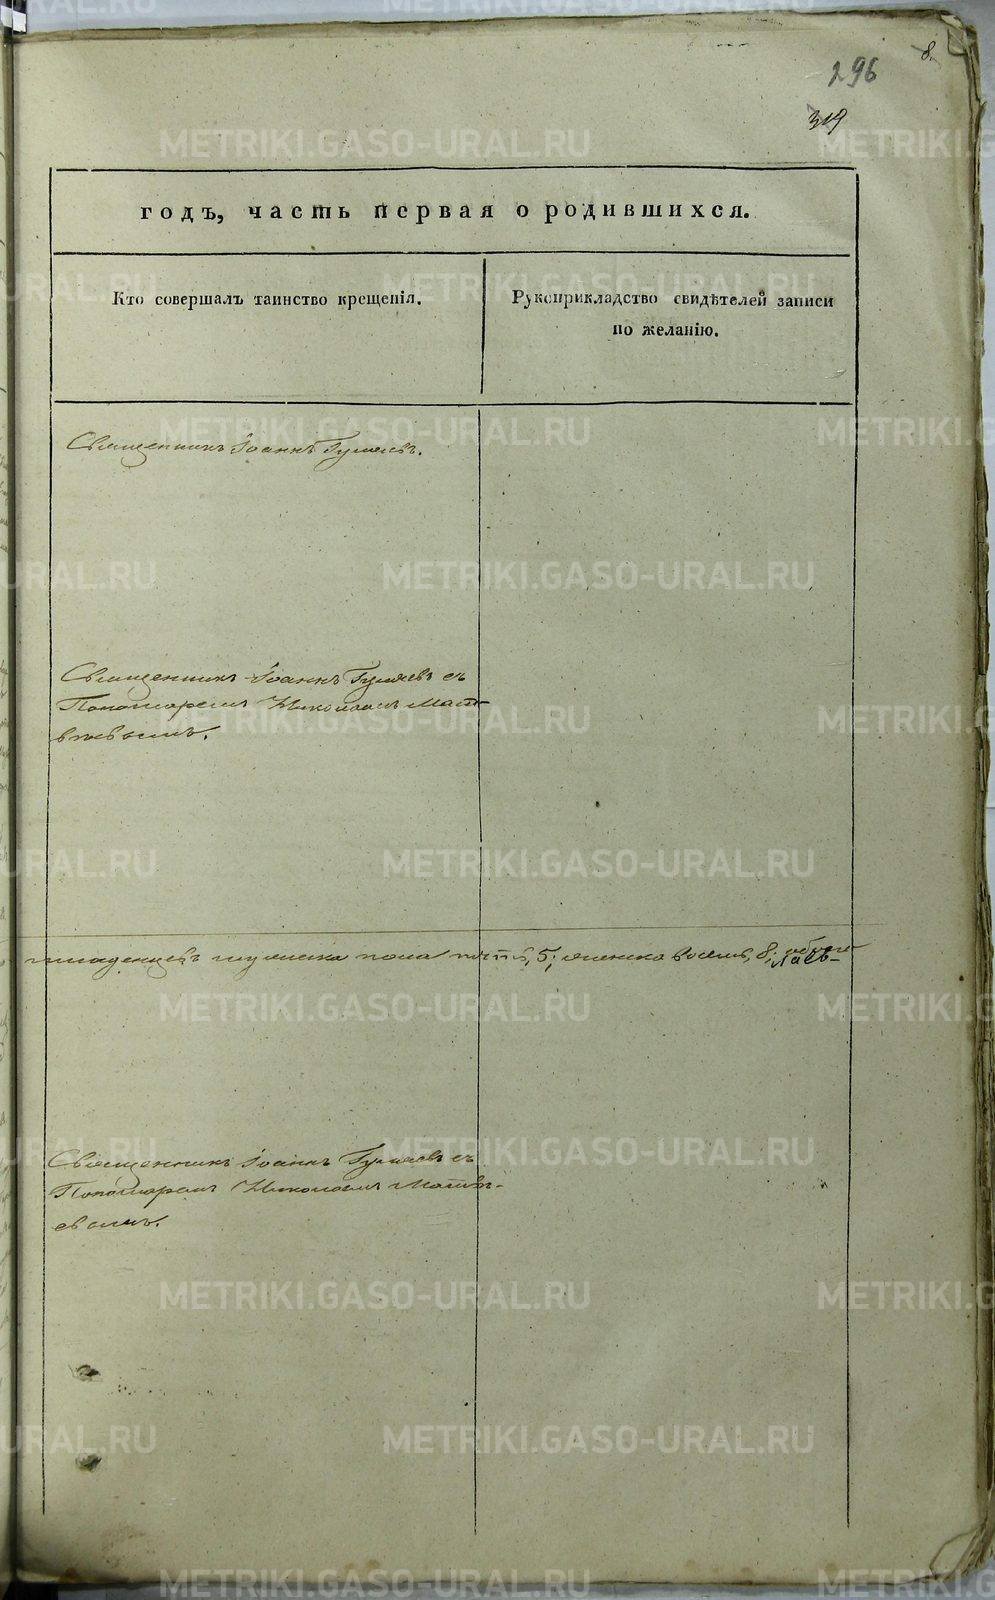 8.
296
319
годъ, часть первая о родившихся.
Кто совершалъ таинство крещенія.
Рукоприкладство свидѣтелей записи
по желанію.
Священникъ Іоаннъ Гуляевъ.
Священникъ Іоаннъ Гуляевъ съ
Пономаремъ Николаемъ Мат-
вѣевымъ.
младенцевъ мужеска пола пять, 5; женска восемь, 8; обоего
Священникъ Іоаннъ Гуляевъ съ
Пономаремъ Николаемъ Матвѣ-
евымъ.
METRIKI.GASO-URAL.RU